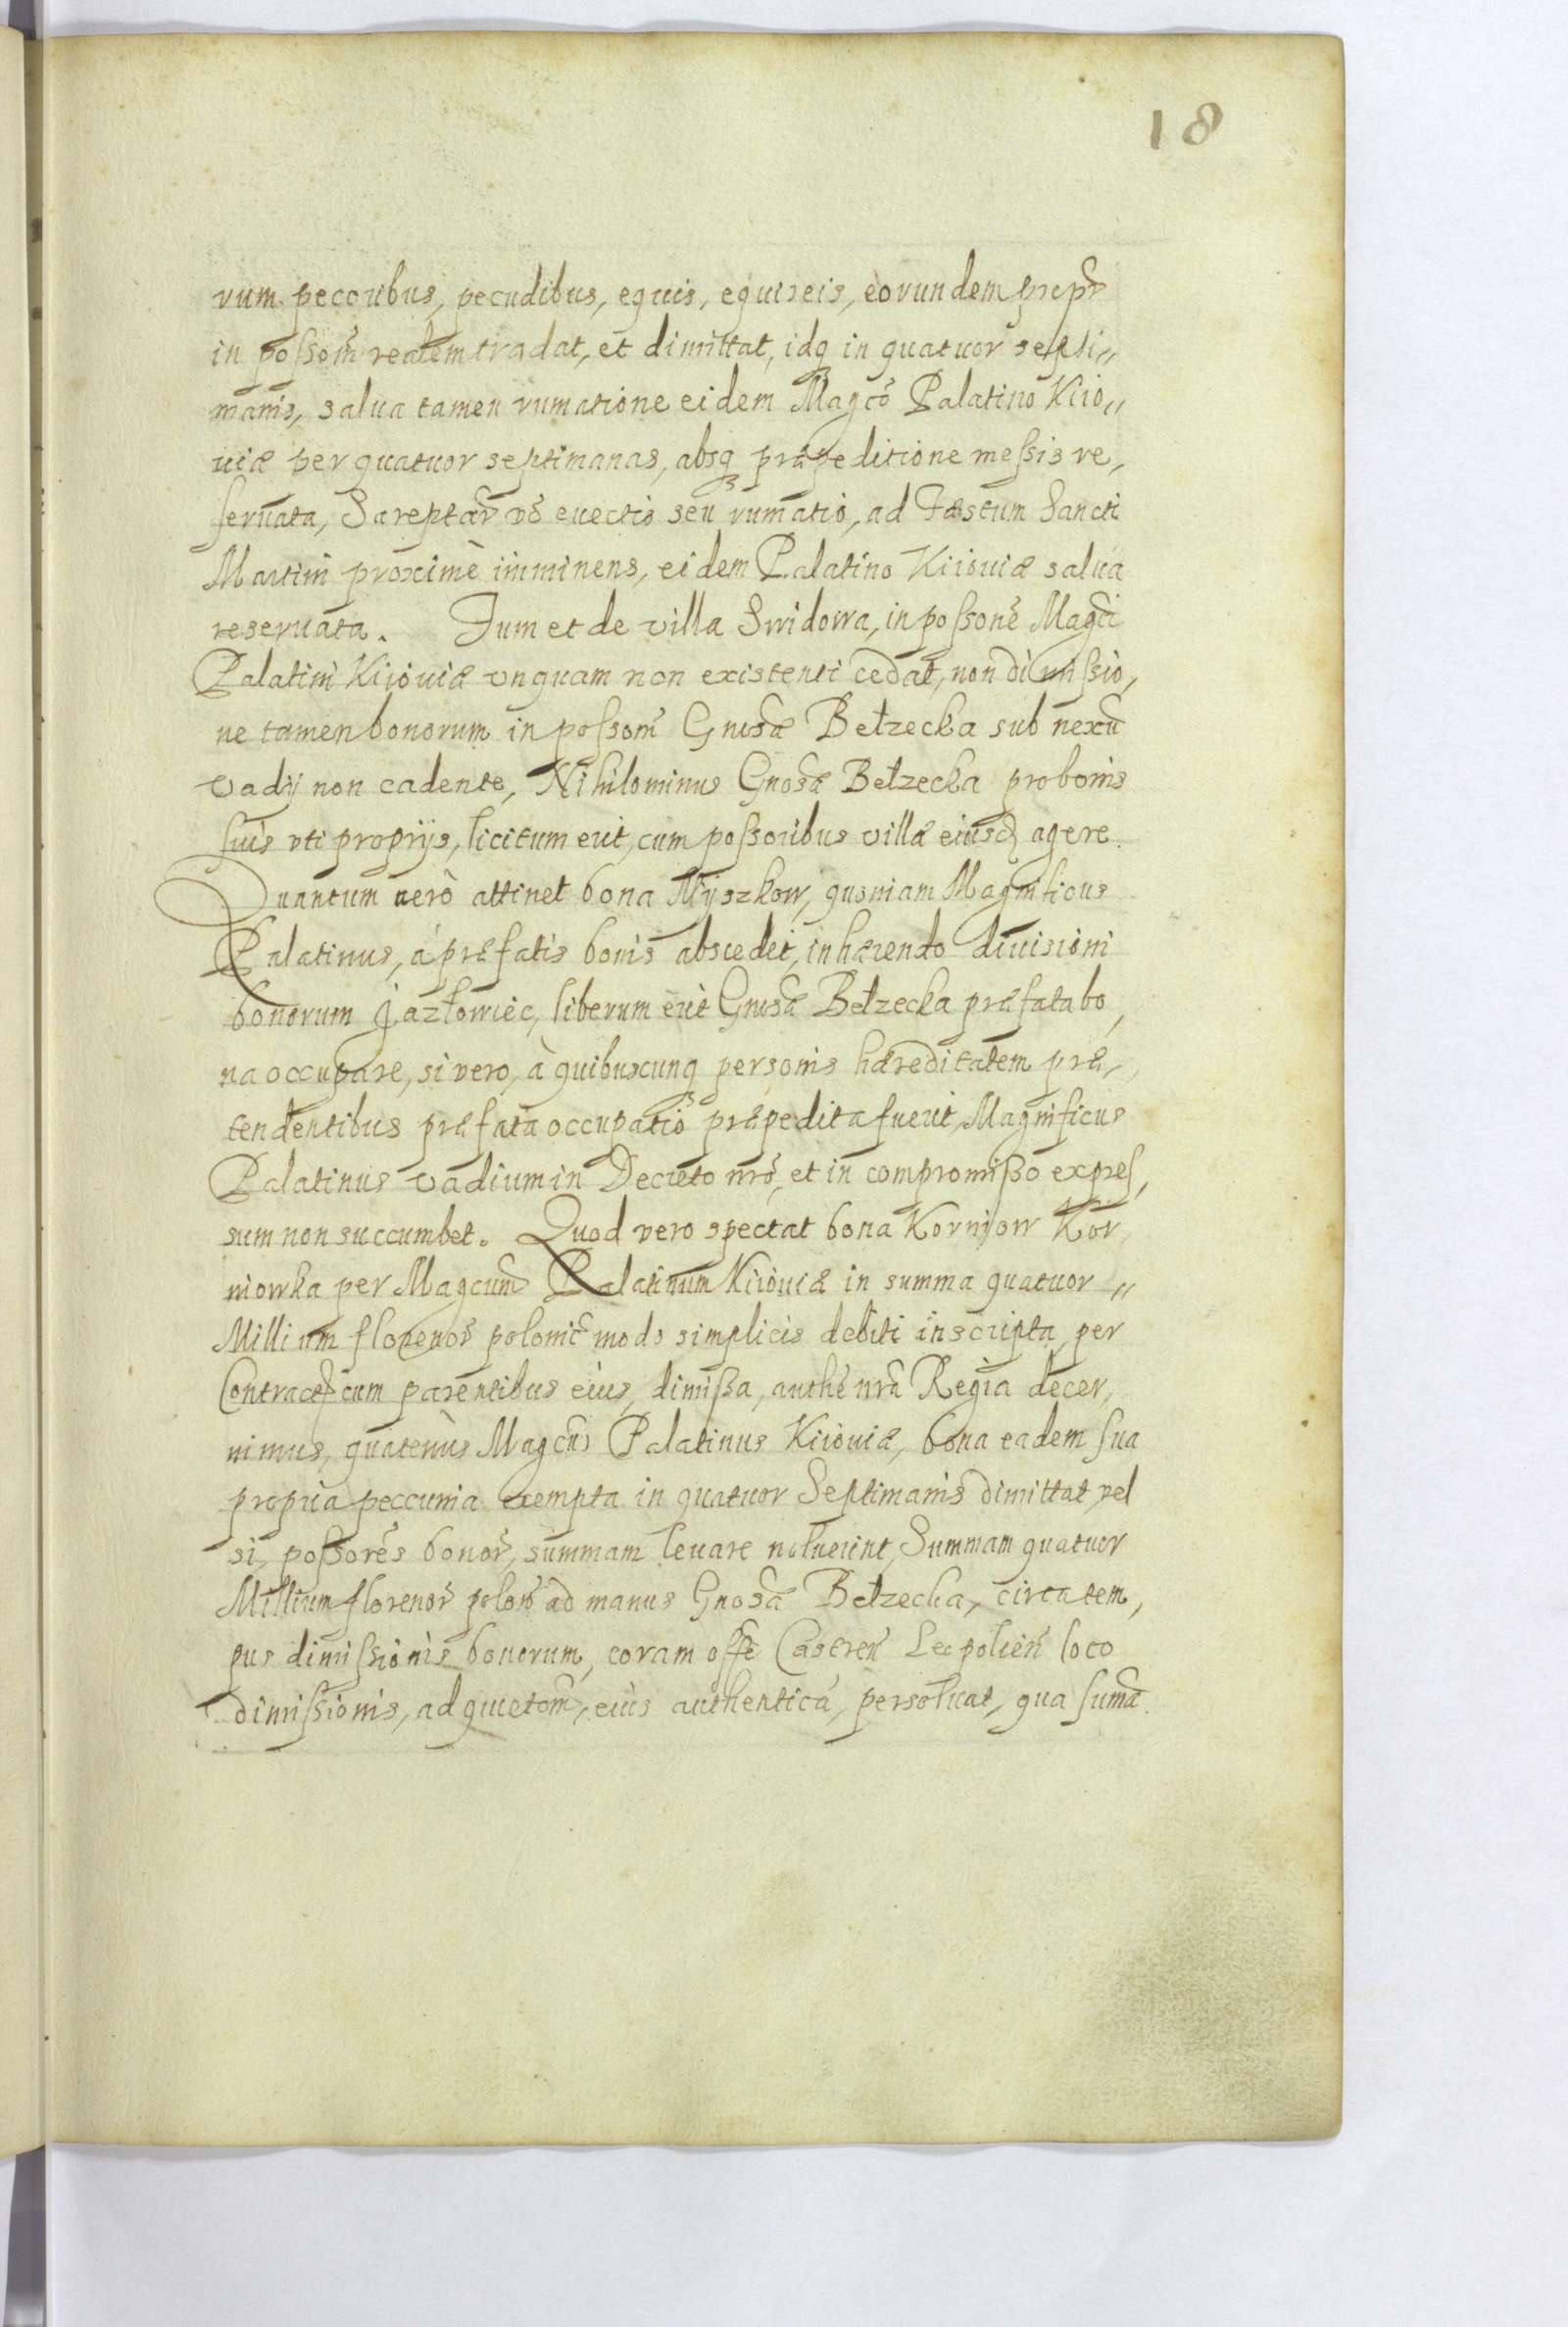 18
rum pecoribus, pecudibus, equis, equireis, eorundem prepr̃
in possom̃ realem tradat, et dimittat, idq̃ in quatuor septi„
manis, salua tamen rumatione eidem Magcõ Palatino Kiio„
uiæ per quatuor septimanas, absq̃ præpeditione messis re,
seruata, Sareptar̃ ṽo euectio seu rumatio, ad Fæstum Sancti
Martini proximè imminens, eidem Palatino Kiiouiæ salua
reseruata. Tum et de villa Swidowa, in possonẽ Magci
Palatini Kijouiæ vnquam non existenti cedat, non dimissio,
ne tamen bonorum in possom̃ Gnosæ Bełzecka sub nexu
vadij non cadente, Nihilominus Gnosæ Bełzecka pro bonis
suis vti proprijs, licitum erit, cum possoribus villæ eiusd agere.
Quantum uerò attinet bona Myszkow, quoniam Magnificus
Palatinus, á præfatis bonis abscedet, inhærendo diuisioni
bonorum Jazłowiec, liberum erit Gnosæ Bełzecka præfata bo,
na occupare, si vero, à quibuscunq̃ personis hæreditatem præ,
tendentibus præfata occupatio præpedita fuerit, Magnificus
Palatinus vadium in Decreto nr̃o, et in compromisso expres,
sum non succumbet. Quod vero spectat bona Kornijow Kor,
niowka per Magcum Palatinum Kiiouiæ in summa quatuor „
Millium florenor̃ polonic̃ modo simplicis debiti inscripta, per
Contract cum parentibus eius, dimissa, authẽ nrã Regia decer,
nimus, quatenùs Magcus Palatinus Kiiouiæ, bona eadem sua
propria peccunia exempta in quatuor Septimanis dimittat, vel
si, possorẽs bonor̃, summam leuare noluerint, Summam quatuor
Millium florenor̃ polon̄ ad manus Gnosæ Bełzecka, circa tem,
pus dimissionis bonorum, coram offẽ Castren̄ Leopolien̄ loco
dimissionis, ad quietom̃, eius authentica, persoluat, qua sumã